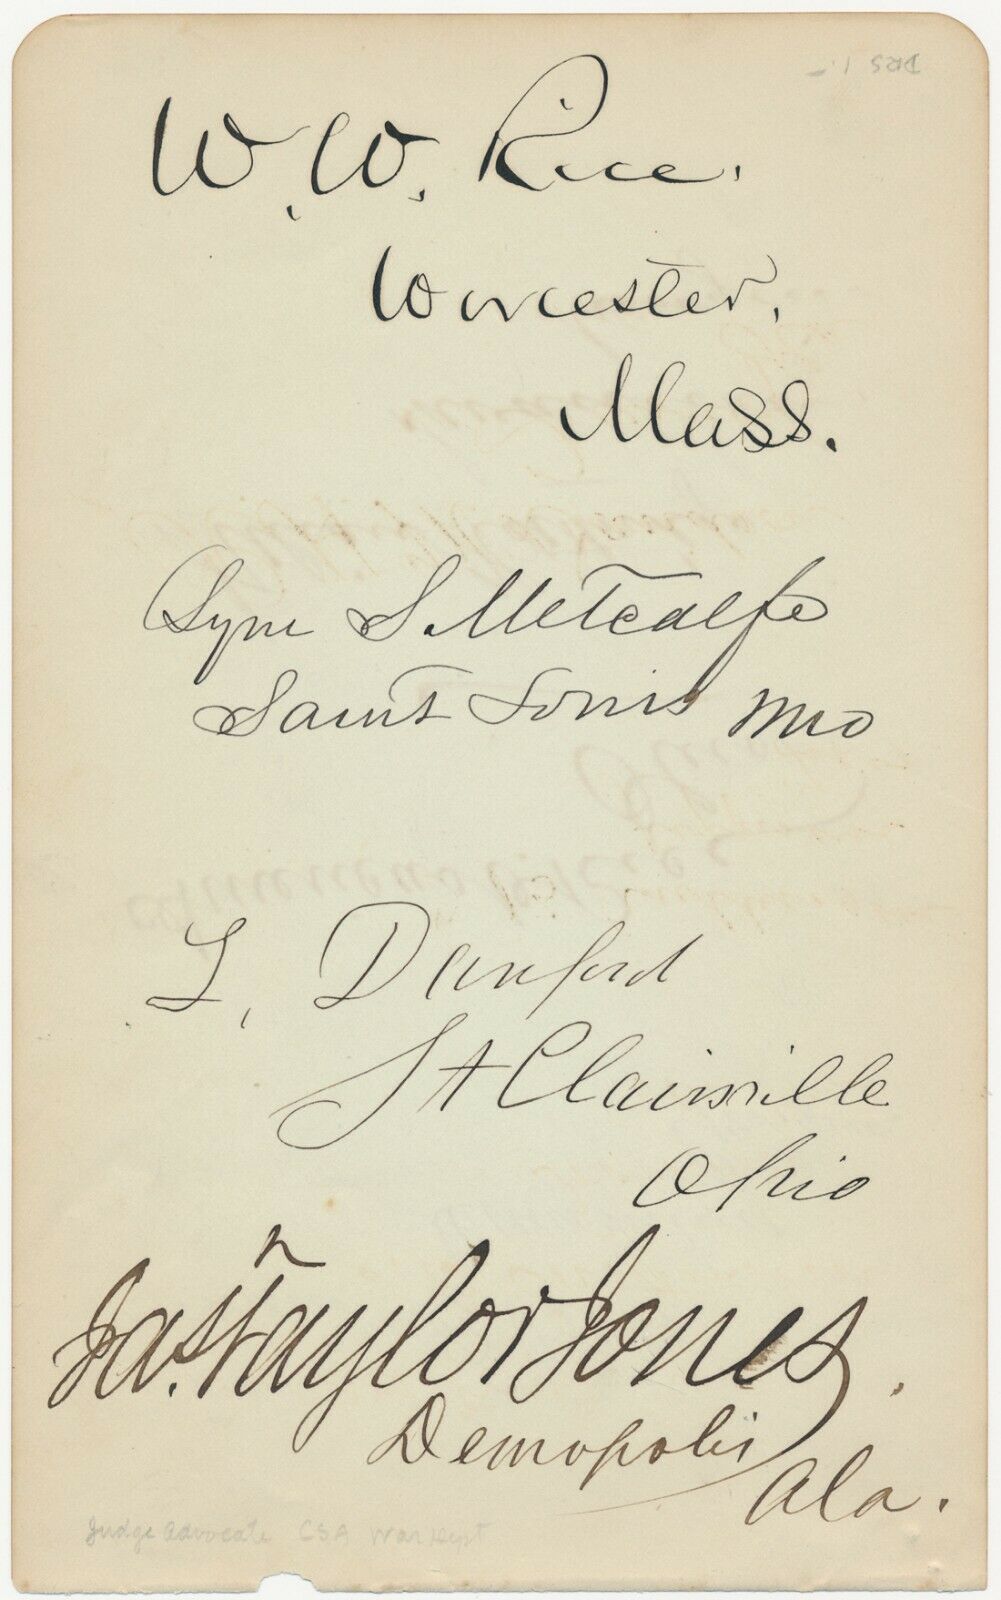 W. W. Rice.
Worcester.
Mass.
Lyne S. Metcalfe
Saint Louis Mo
L. Danford
St Clairsville
Ohio
Jas. Taylor Jones.
Demopolis
Ala.
Judge Advocate CSA War Dept